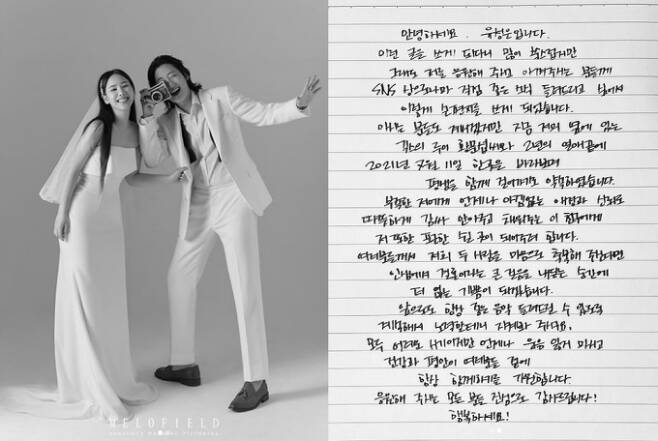 안녕하세요. 유형은입니다.
이런 글을 쓰게 되다니 많이 쑥스럽지만
그래도 저를 응원해 주시고 아껴주시는 분들께
SNS 상으로나마 직접 좋은 소식 들려드리고 싶어서
이렇게 손편지를 쓰게 되었습니다.
아시는 분들도 계시겠지만 지금 저의 옆에 있는
가수 주이 2년의 연애끝에
2021년 7월 11일 한곳을 바라보며
평생을 함께 걸어가기로 약속하였습니다.
부족한 저에게 언제나 아낌없는 애정과 신뢰로
따뜻하게 감싸 안아주고 채워주는 이 친구에게
저 또한 포근한 쉴 곳이 되어주려 합니다.
여러분들께서 저희 두 사람을 마음으로 축복해 주신다면
인생에서 결혼이라는 큰 걸음을 내딛는 순간에
더 없는 기쁨이 되겠습니다.
앞으로도 항상 좋은 음악 들려드릴 수 있도록
계속해서 노력할테니 지켜봐 주시고,
모두 어려운 시기이지만 언제나 웃음 잃지 마시고
건강과 평안이 여러분들 곁에
항상 함께하기를 기원합니다.
응원해 주시는 모든 분들 진심으로 감사드립니다!
행복하세요!
MELOFIELD